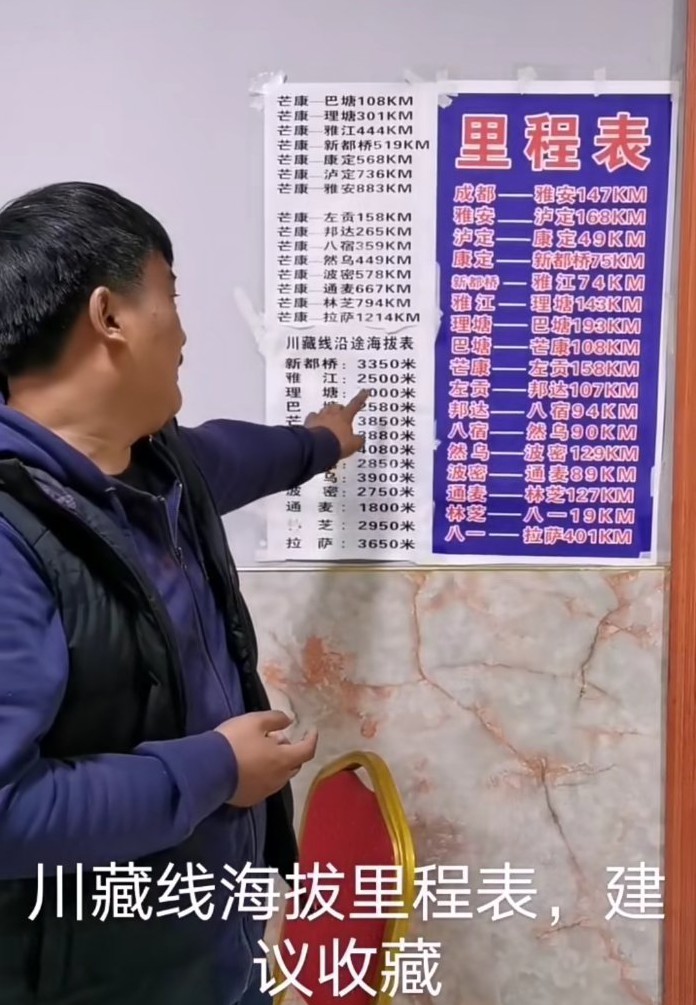 芒康—巴塘108KM
芒康—理塘301KM
芒康—雅江444KM
芒康—新都桥519KM
芒康—康定568KM
芒康—泸定736KM
芒康—雅安883KM
芒康—左贡158KM
芒康—邦达265KM
芒康—八宿359KM
芒康—然乌449KM
芒康—波密578KM
芒康—通麦667KM
芒康—林芝794KM
芒康—拉萨1214KM
川藏线沿途海拔表
新都桥：3350米
雅 江：2500米
理 塘：000米
巴 2580米
芒 3850米
3880米
4080米
2850米
乌：3900米
波 密：2750米
通 麦：1800米
芝：2950米
拉 萨：3650米
里程表
成都——雅安147KM
雅安——泸定168KM
泸定——康定49KM
康定——新都桥75KM
新都桥—雅江74KM
雅江——理塘143KM
理塘——巴塘193KM
巴塘——芒康108KM
芒康——左贡158KM
左贡——邦达107KM
邦达——八宿94KM
八宿——然乌90KM
然乌——波密129KM
波密——通麦89KM
通麦——林芝127KM
林芝——八一19KM
八一——拉萨401KM
川藏线海拔里程表，建
议收藏